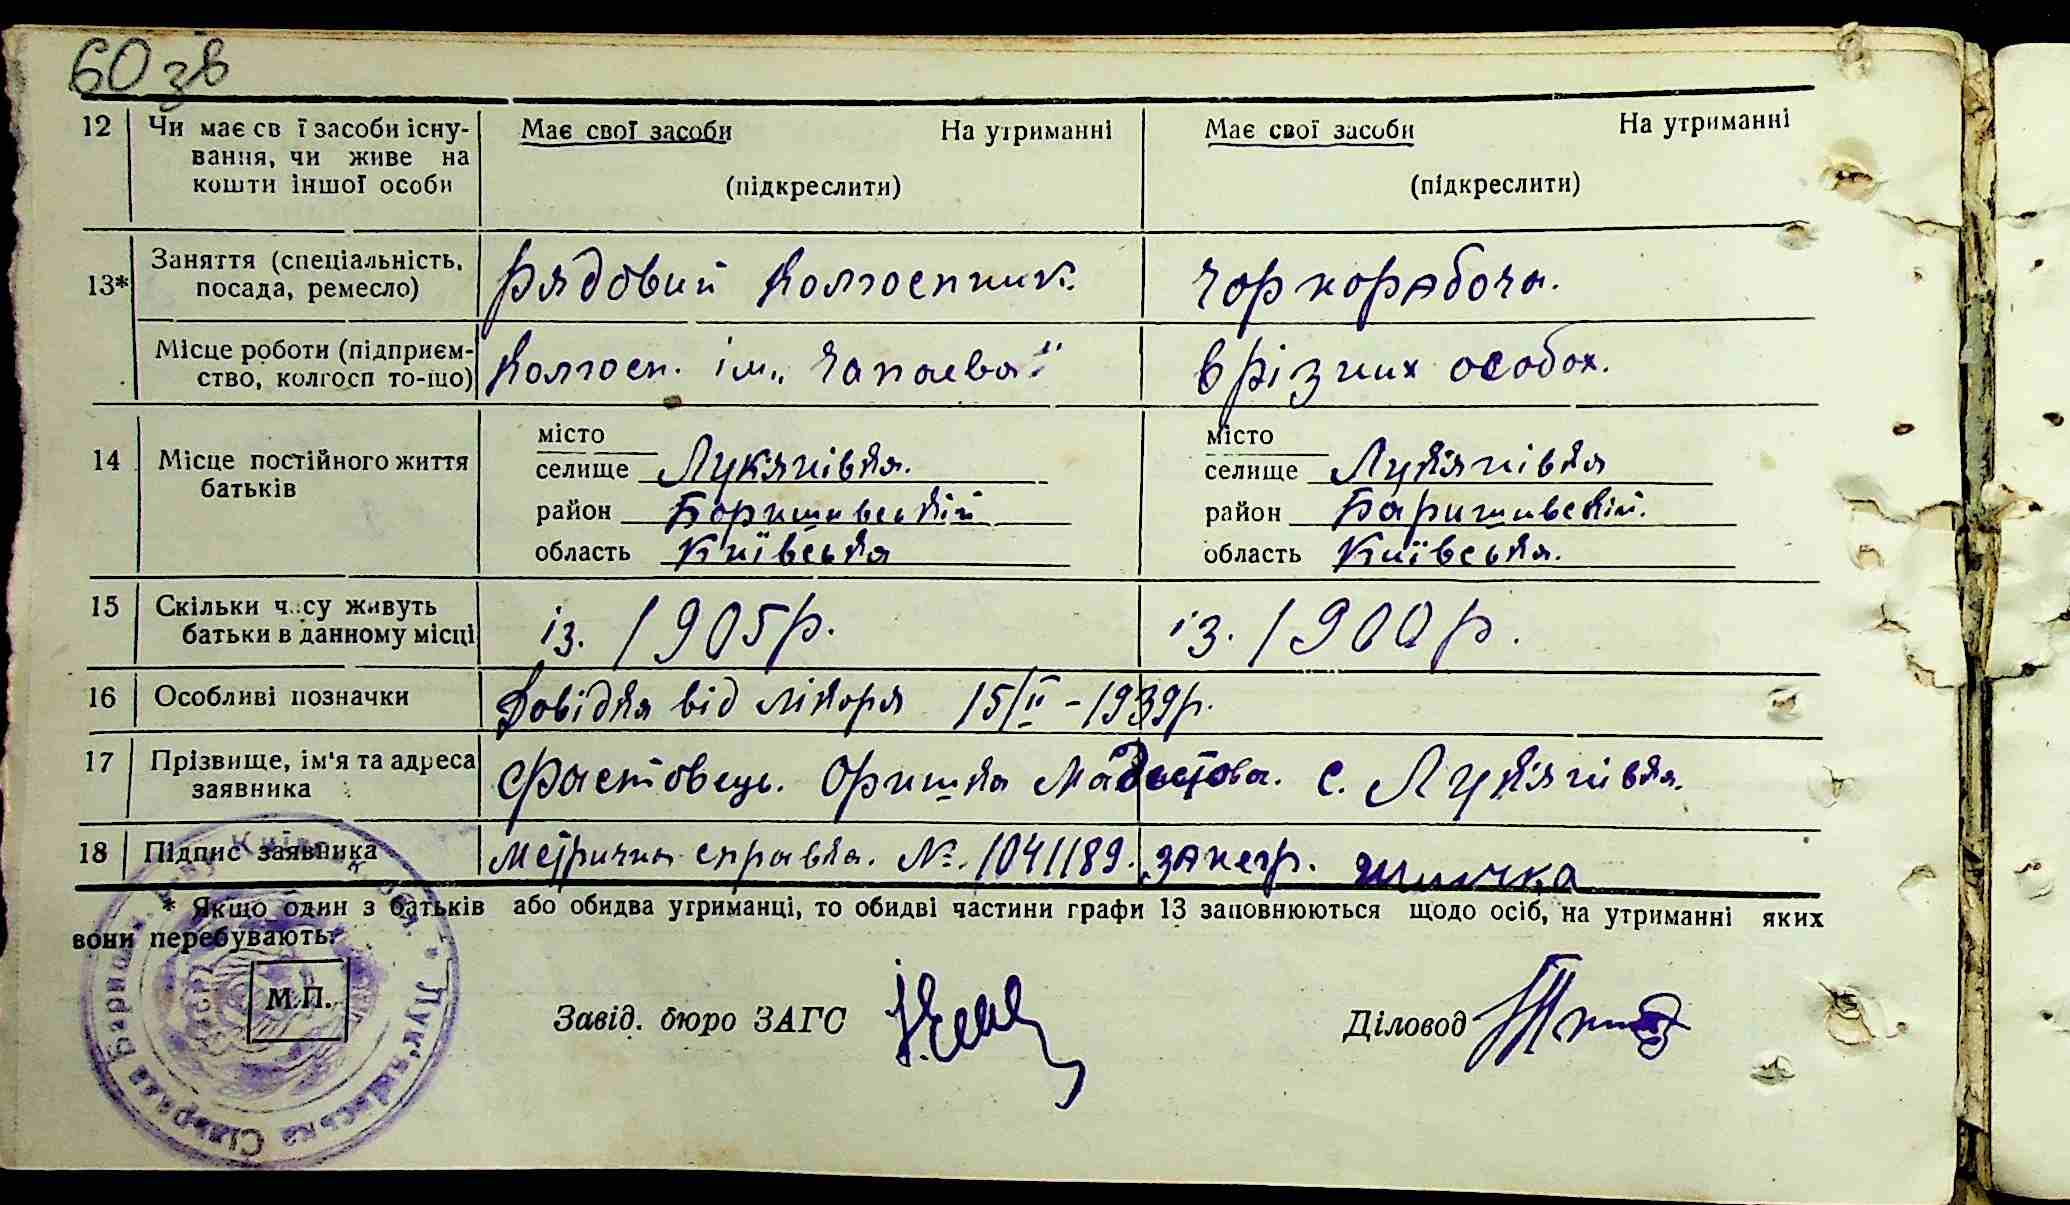 60 зв
12 Чи має св ї засоби існу- Має свої засоби На утриманні Має свої засоби На утриманні
вання, чи живе на
кошти іншої особи (підкреслити) (підкреслити)
13* Заняття (спеціальність, посада, ремесло) Рядовий колгоспник. Чоркорабоча.
Місце роботи (підприєм- Колгосп. ім. „Чапаєва" в різних особох.
ство, колгосп то-що)
14 Місце постійного життя батьків
місто місто
селище Лукянівка. селище Лукянівка
район Боришивський район Баришивський.
область Київська область Київська.
15 Скільки часу живуть із. 1905р. із. 1900р.
батьки в данному місці
16 Особливі позначки Довідка від лікоря 15/II-1939р.
17 Прізвище, ім'я та адреса Фастовець. Оришка с. Лукянівка.
заявника
18 Підпис заявника Метрична справка. №. 1041189.
* Якщо один з батьків або обидва утриманці, то обидві частини графи 13 заповнюються щодо осіб, на утриманні яких
вони перебувають.
М.П.
Завід. бюро ЗАГС Діловод
Лук'янівська Сільрада Баришів. Київськ. обл.